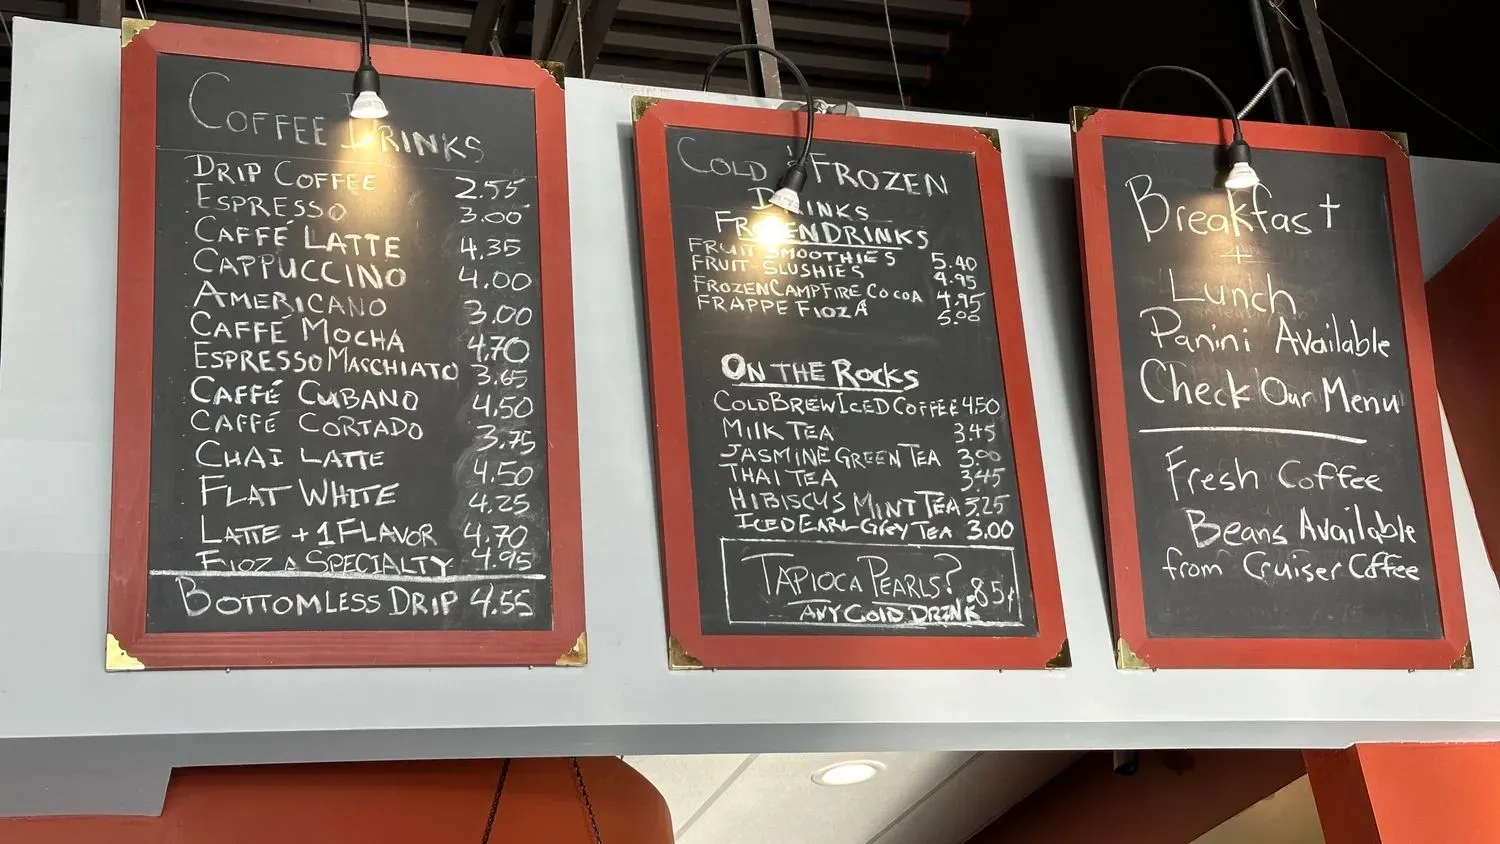 COFFEE DRINKS
DRIP COFFEE 2.55
ESPRESSO 3.00
CAFFÉ LATTE 4.35
CAPPUCCINO 4.00
AMERICANO 3.00
CAFFÉ MOCHA 4.70
ESPRESSO MACCHIATO 3.65
CAFFÉ CUBANO 4.50
CAFFÉ CORTADO 3.75
CHAI LATTE 4.50
FLAT WHITE 4.25
LATTE + 1 FLAVOR 4.70
FIOZA SPECIALTY 4.95
BOTTOMLESS DRIP 4.55
COLD & FROZEN
DRINKS
FROZEN DRINKS
FRUIT SMOOTHIES 5.40
FRUIT-SLUSHIES 4.95
FROZEN CAMPFIRE COCOA 4.95
FRAPPE FIOZA 5.00
ON THE ROCKS
COLD BREW ICED COFFEE 4.50
MILK TEA 3.45
JASMINE GREEN TEA 3.00
THAI TEA 3.45
HIBISCUS MINT TEA 3.25
ICED EARL GREY TEA 3.00
TAPIOCA PEARLS? .85¢
ANY COLD DRINK
Breakfast
+
Lunch
Panini Available
Check Our Menu
Fresh Coffee
Beans Available
from Cruiser Coffee